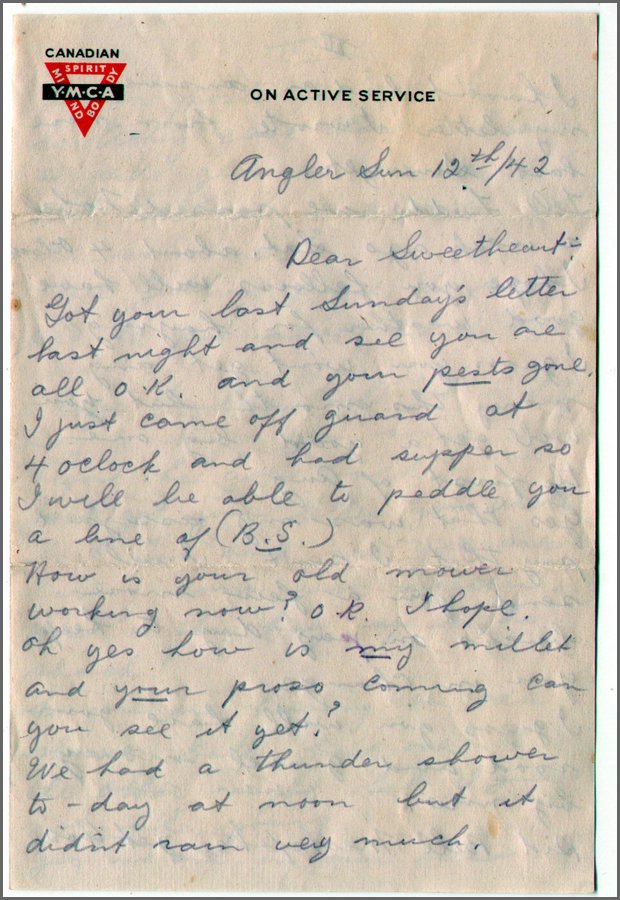 CANADIAN
SPIRIT
MIND
BODY
Y·M·C·A
ON ACTIVE SERVICE
Angler Sun 12th/42
Dear Sweetheart:-
Got your last Sunday's letter
last night and see you are
all O.K. and your pests gone.
I just came off guard at
4 oclock and had supper so
I will be able to peddle you
a line of (B.S.)
How is your old mower
working now? O.K. I hope.
Oh yes how is my millet
and your proso coming can
you see it yet?
We had a thunder shower
to-day at noon but it
didn't rain very much.